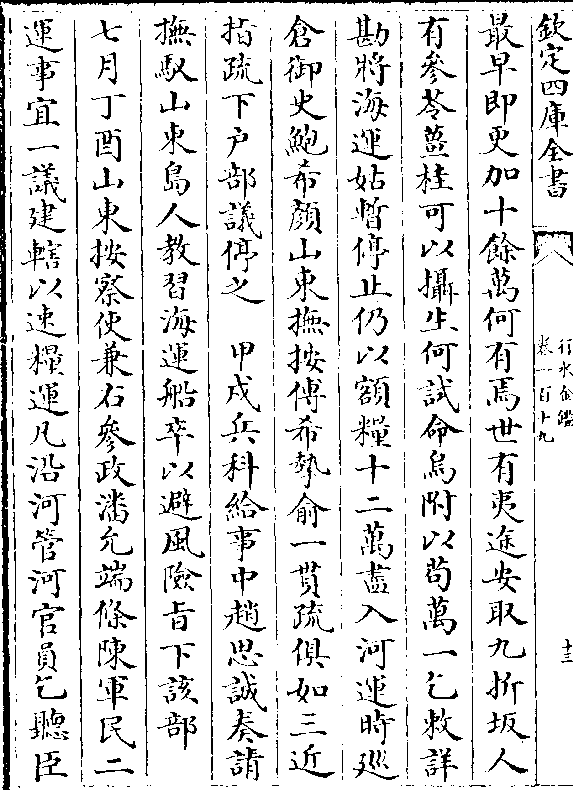 欽定四庫全書
行水金鑑
卷一百十九
十三
最早即更加十餘萬何有焉世有夷途安取九折坂人
有參苓薑桂可以攝生何試命烏附以苟萬一乞敕詳
勘將海運姑暫停止仍以額糧十二萬盡入河運時廵
倉御史鮑希顔山東撫按傅希摯俞一貫疏俱如三近
指疏下户部議停之　甲戌兵科給事中趙思誠奏請
撫馭山東島人教習海運船卒以避風險旨下該部
七月丁酉山東按察使兼右參政潘允端條陳軍民二
運事宜一議建轄以速糧運凡沿河管河官員乞聽臣